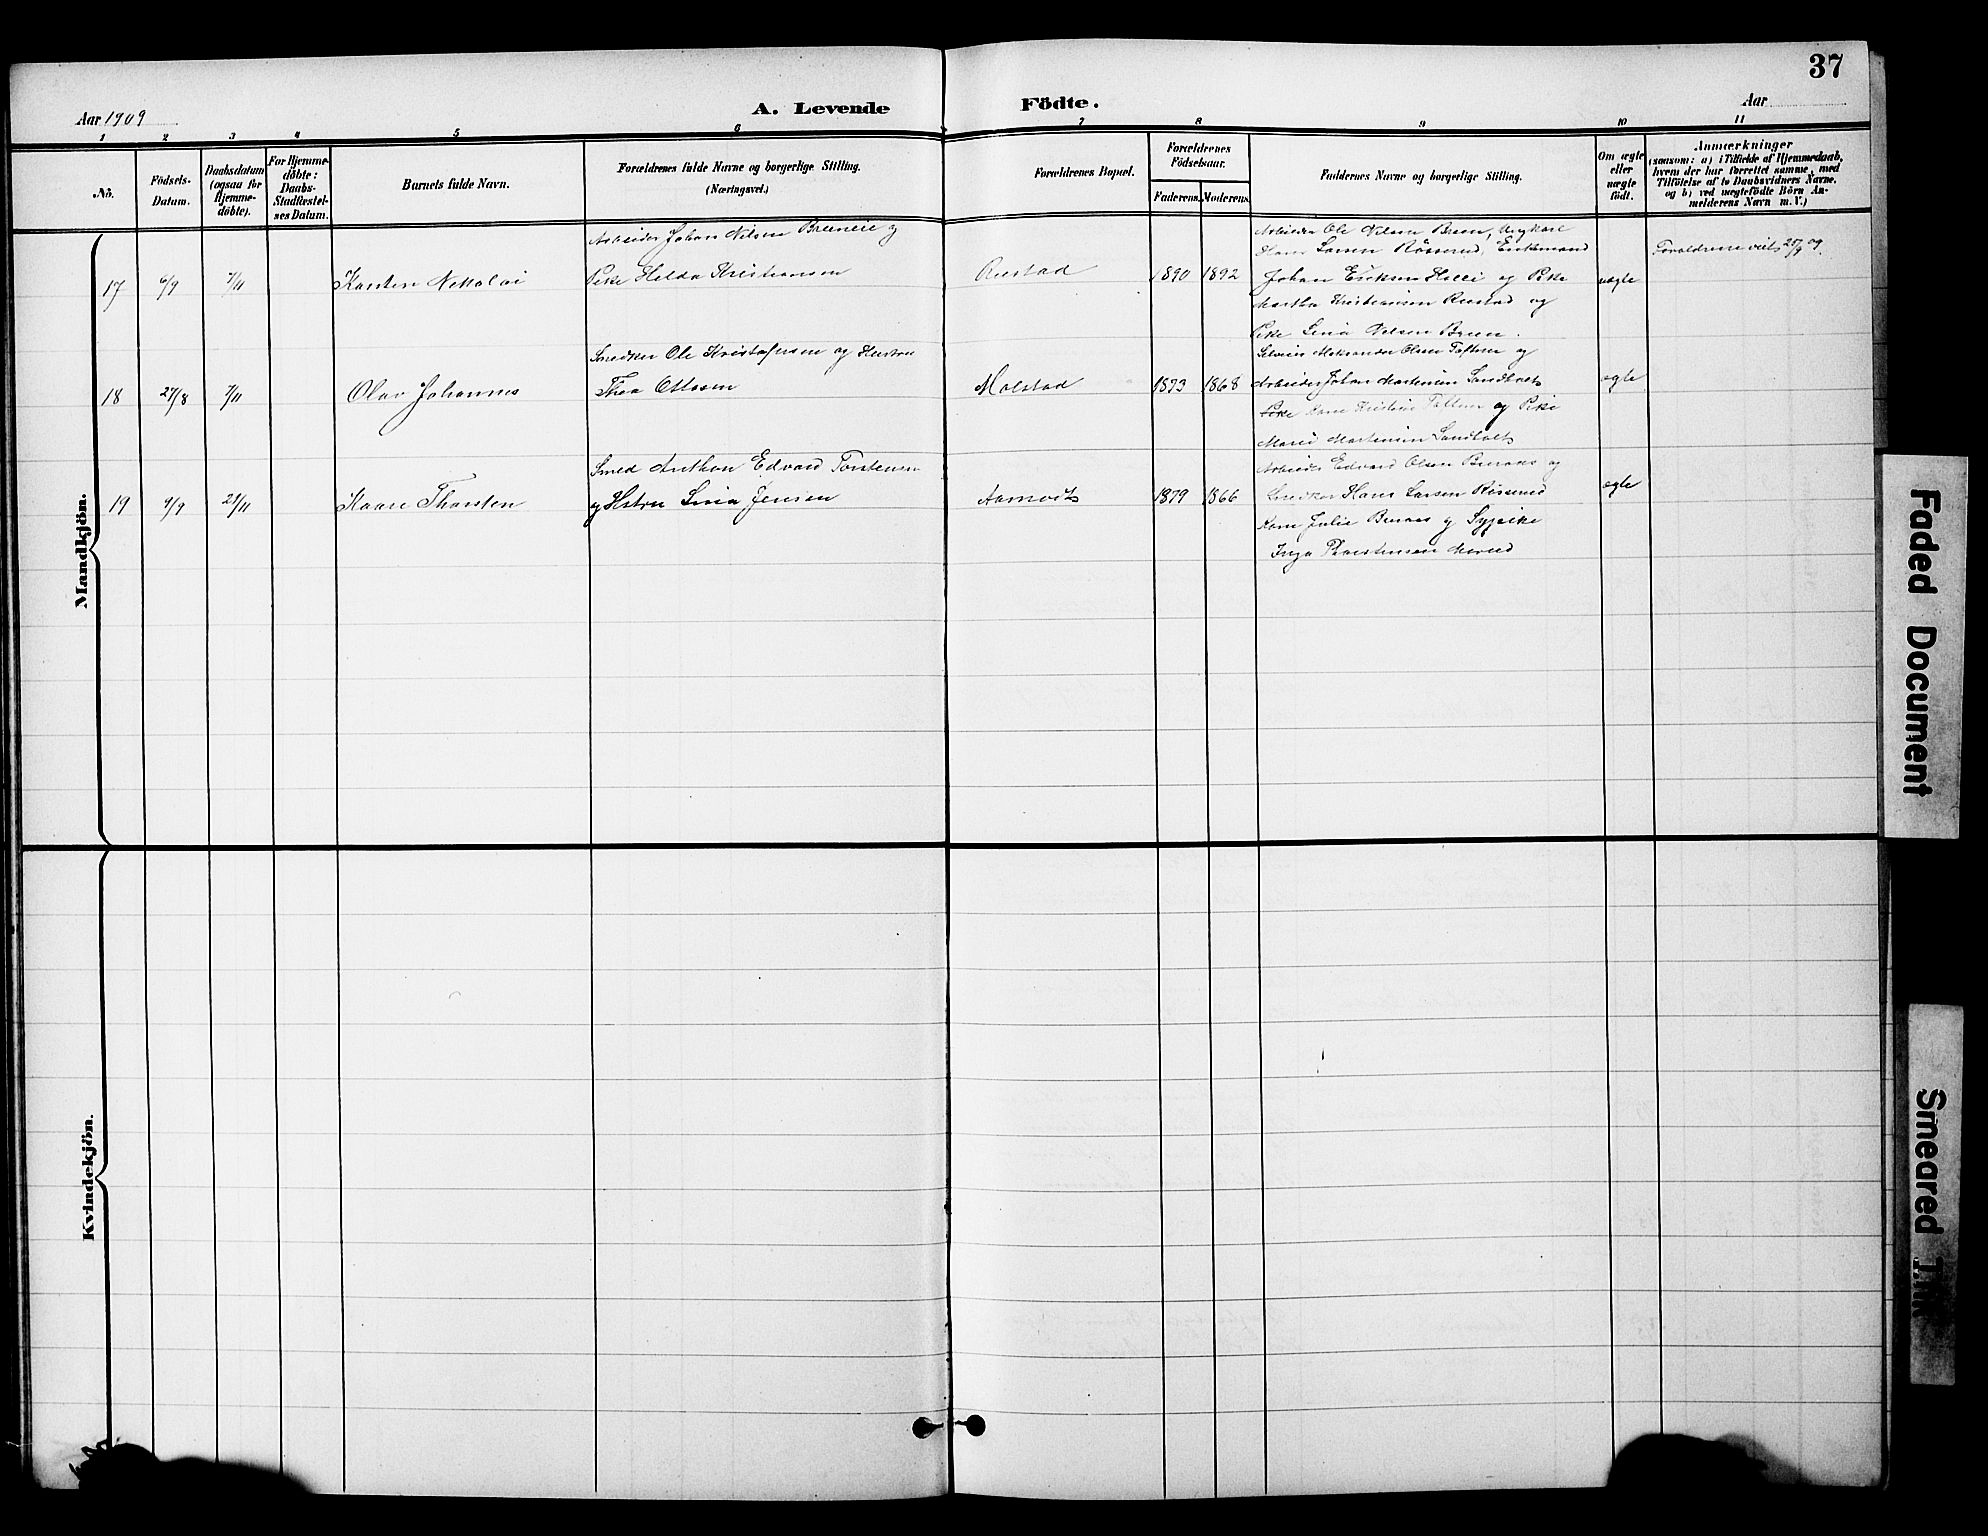 37
Aar 1909
A. Levende Födte.
Aar
1 2 3 4 5 6 7 8 9 10 11
No.
Födsels-
Datum.
Daabsdatum
(ogsaa for
Hjemme-
döbte).
For Hjemme-
döbte:
Daabs-
Stadfæstel-
ses Datum.
Barnets fulde Navn.
Forældrenes fulde Navne og borgerlige Stilling.
(Næringsvei.)
Forældrenes Bopæl.
Forældrenes
Födselsaar.
Faderens.
Moderens.
Faddernes Navne og borgerlige Stilling.
Om ægte
eller
uægte
født.
Anmærkninger
(saasom: a) i Tilfælde af Hjemmedaab,
hvem der har forrettet samme, med
Tilföielse af to Daabsvidners Navne,
og b) ved uægtefödte Börn An-
melderens Navn m. V.)
Mandkjön.
17
6/9
7/11
Karsten Nikolai
Arbeider Johan Nilsen Breneie og
Pike Helda Kristiansen
Rustad
1890
1892
Arbeider Ole Nilsen Breen, Ungkarl
Hans Larsen Røserud, Enkemand
Johan Eriksen Holli og Pike
Martha Kristiansen Rustad og
Pike Lina Nilsen Breen.
uægte
Forældrene viet 25/9 09.
18
27/8
7/11
Olav Johannes
Snedker Ole Kristofersen og Hustru
Thea Ottesen
Molstad
1873
1868
Aleksander Olsen Toftern og
Arbeider Johan Martensen Sandholt
Pike Kone Kristine Toftern og Pike
Marie Martensen Sandholt
ægte
19
9/9
21/11
Kaare Thorsten
Smed Anthon Edvard Torstensen
og Hstru Lina Jensen
Aamodt
1879
1866
Arbeider Edvard Olsen Buraas og
Snedker Hans Larsen Røsserud
Kone Julie Buraas og Sypike
Inga Thorstensen Morud
ægte
Kvindekjön.
Faded Document
Smeared Ink